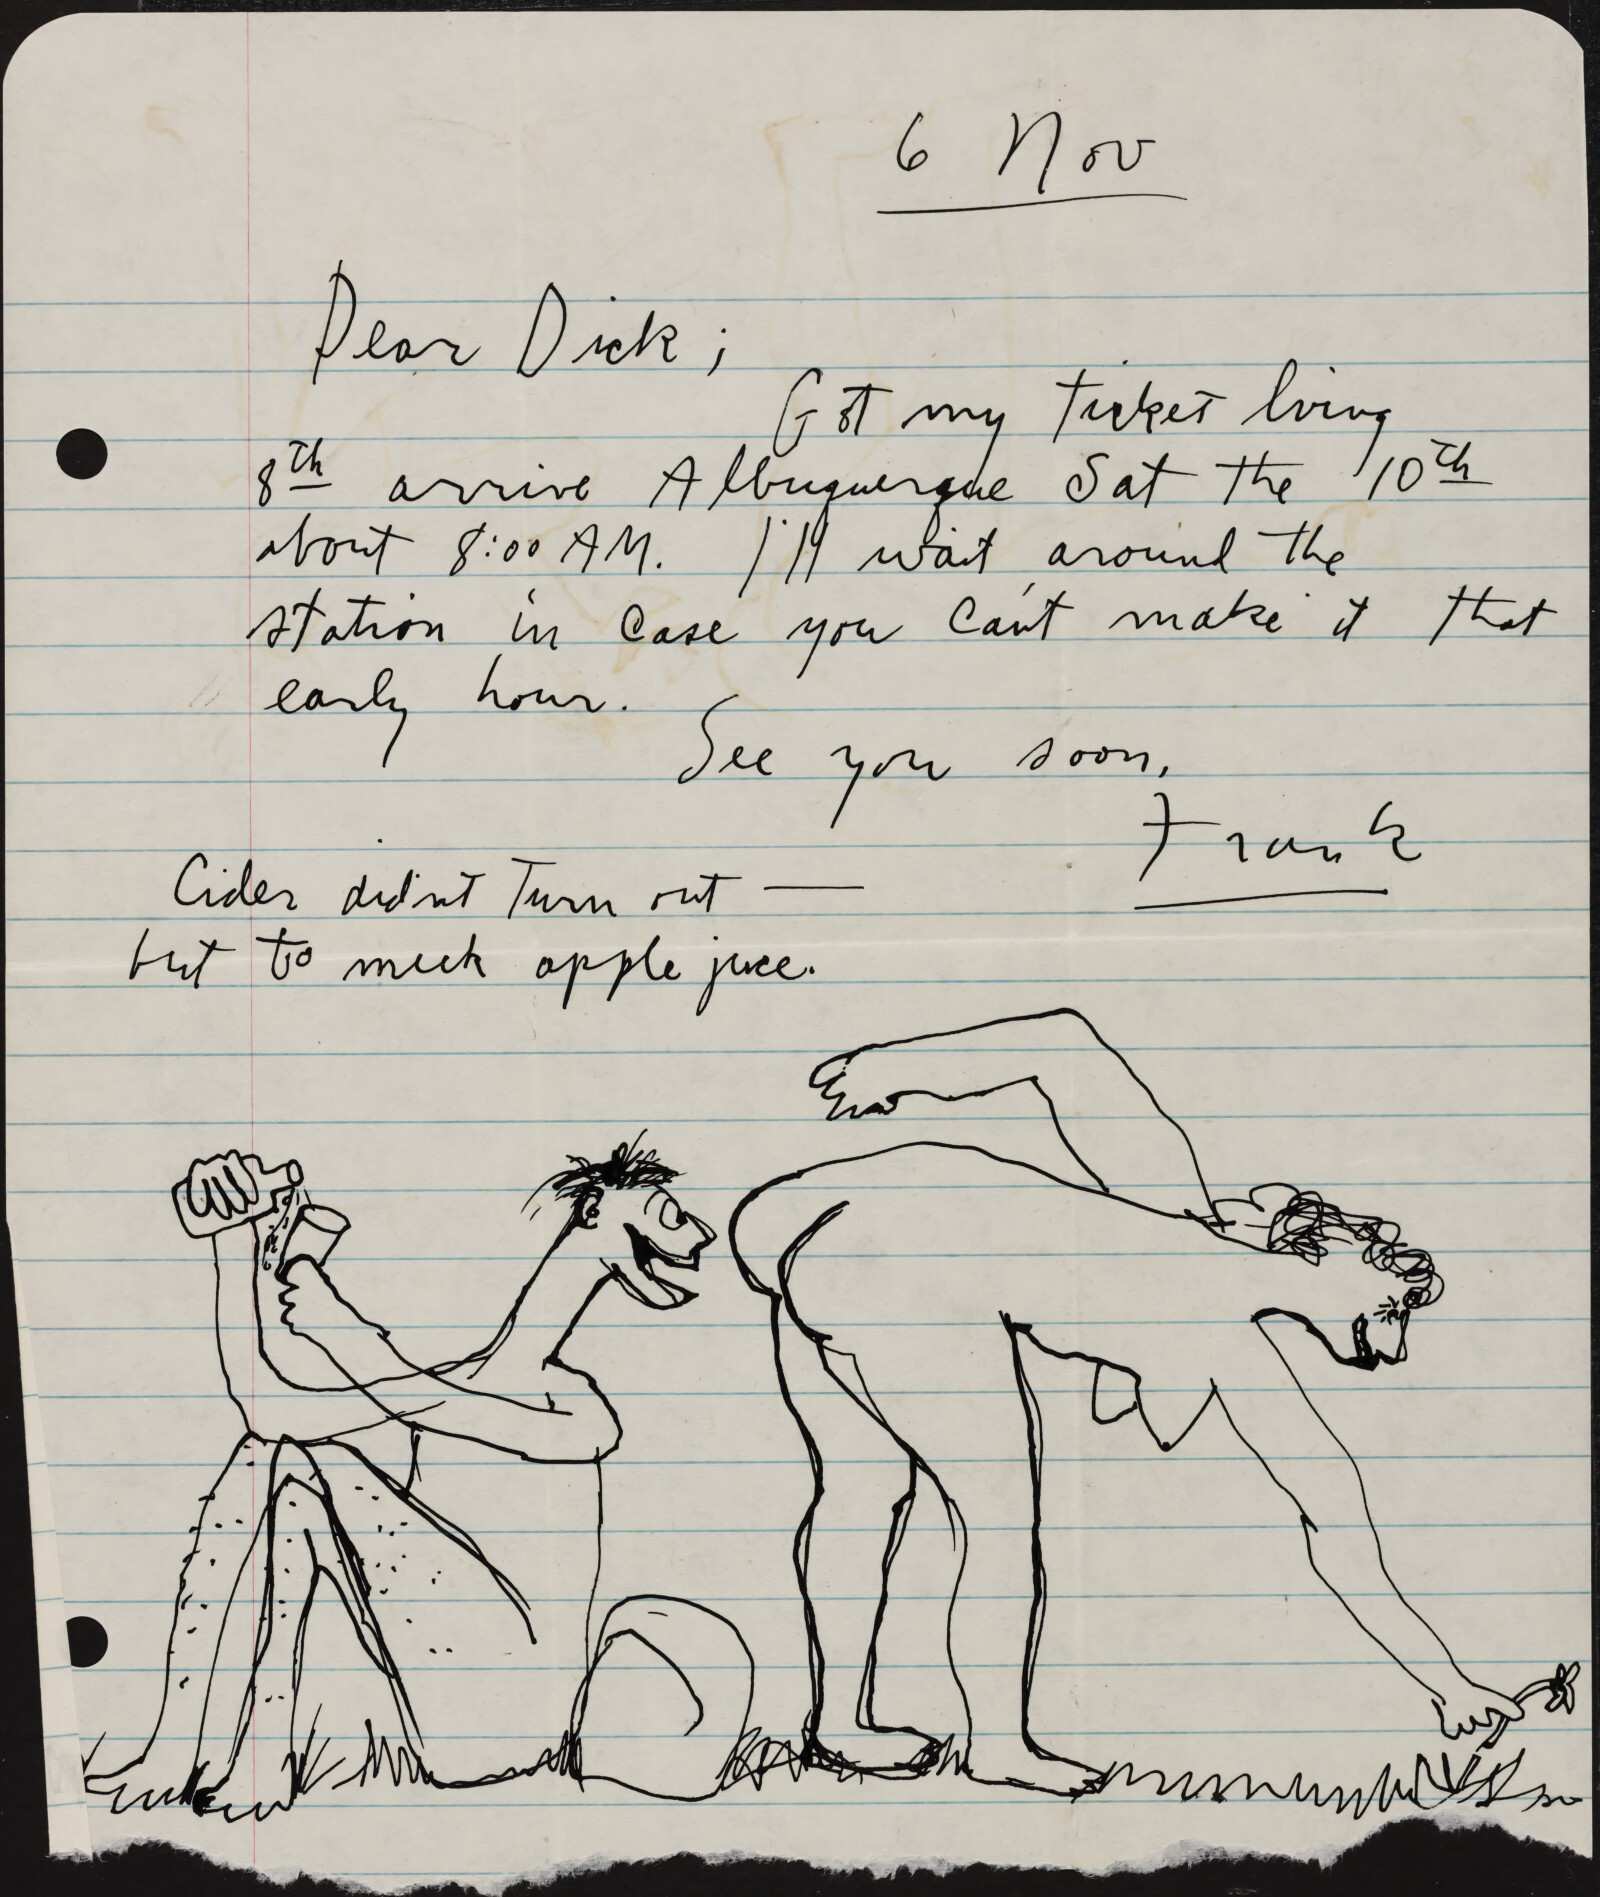 6 Nov
Dear Dick;
Got my ticket lving
8th arrive Albuquerque Sat the 10th
about 8:00 AM. I'll wait around the
station in case you can't make it that
early hour.
See you soon,
Frank
Cider didn't turn out —
but to meek apple juce.